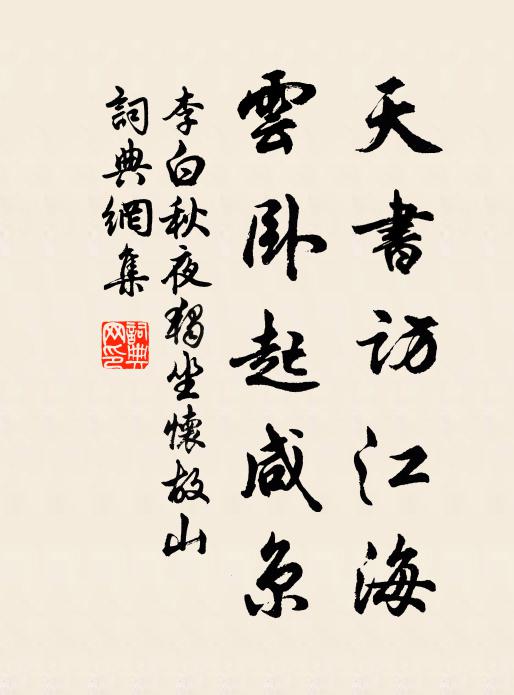 天書訪江海
雲臥起咸京
李白秋夜獨坐懷故山
詞典網集
詞典網印